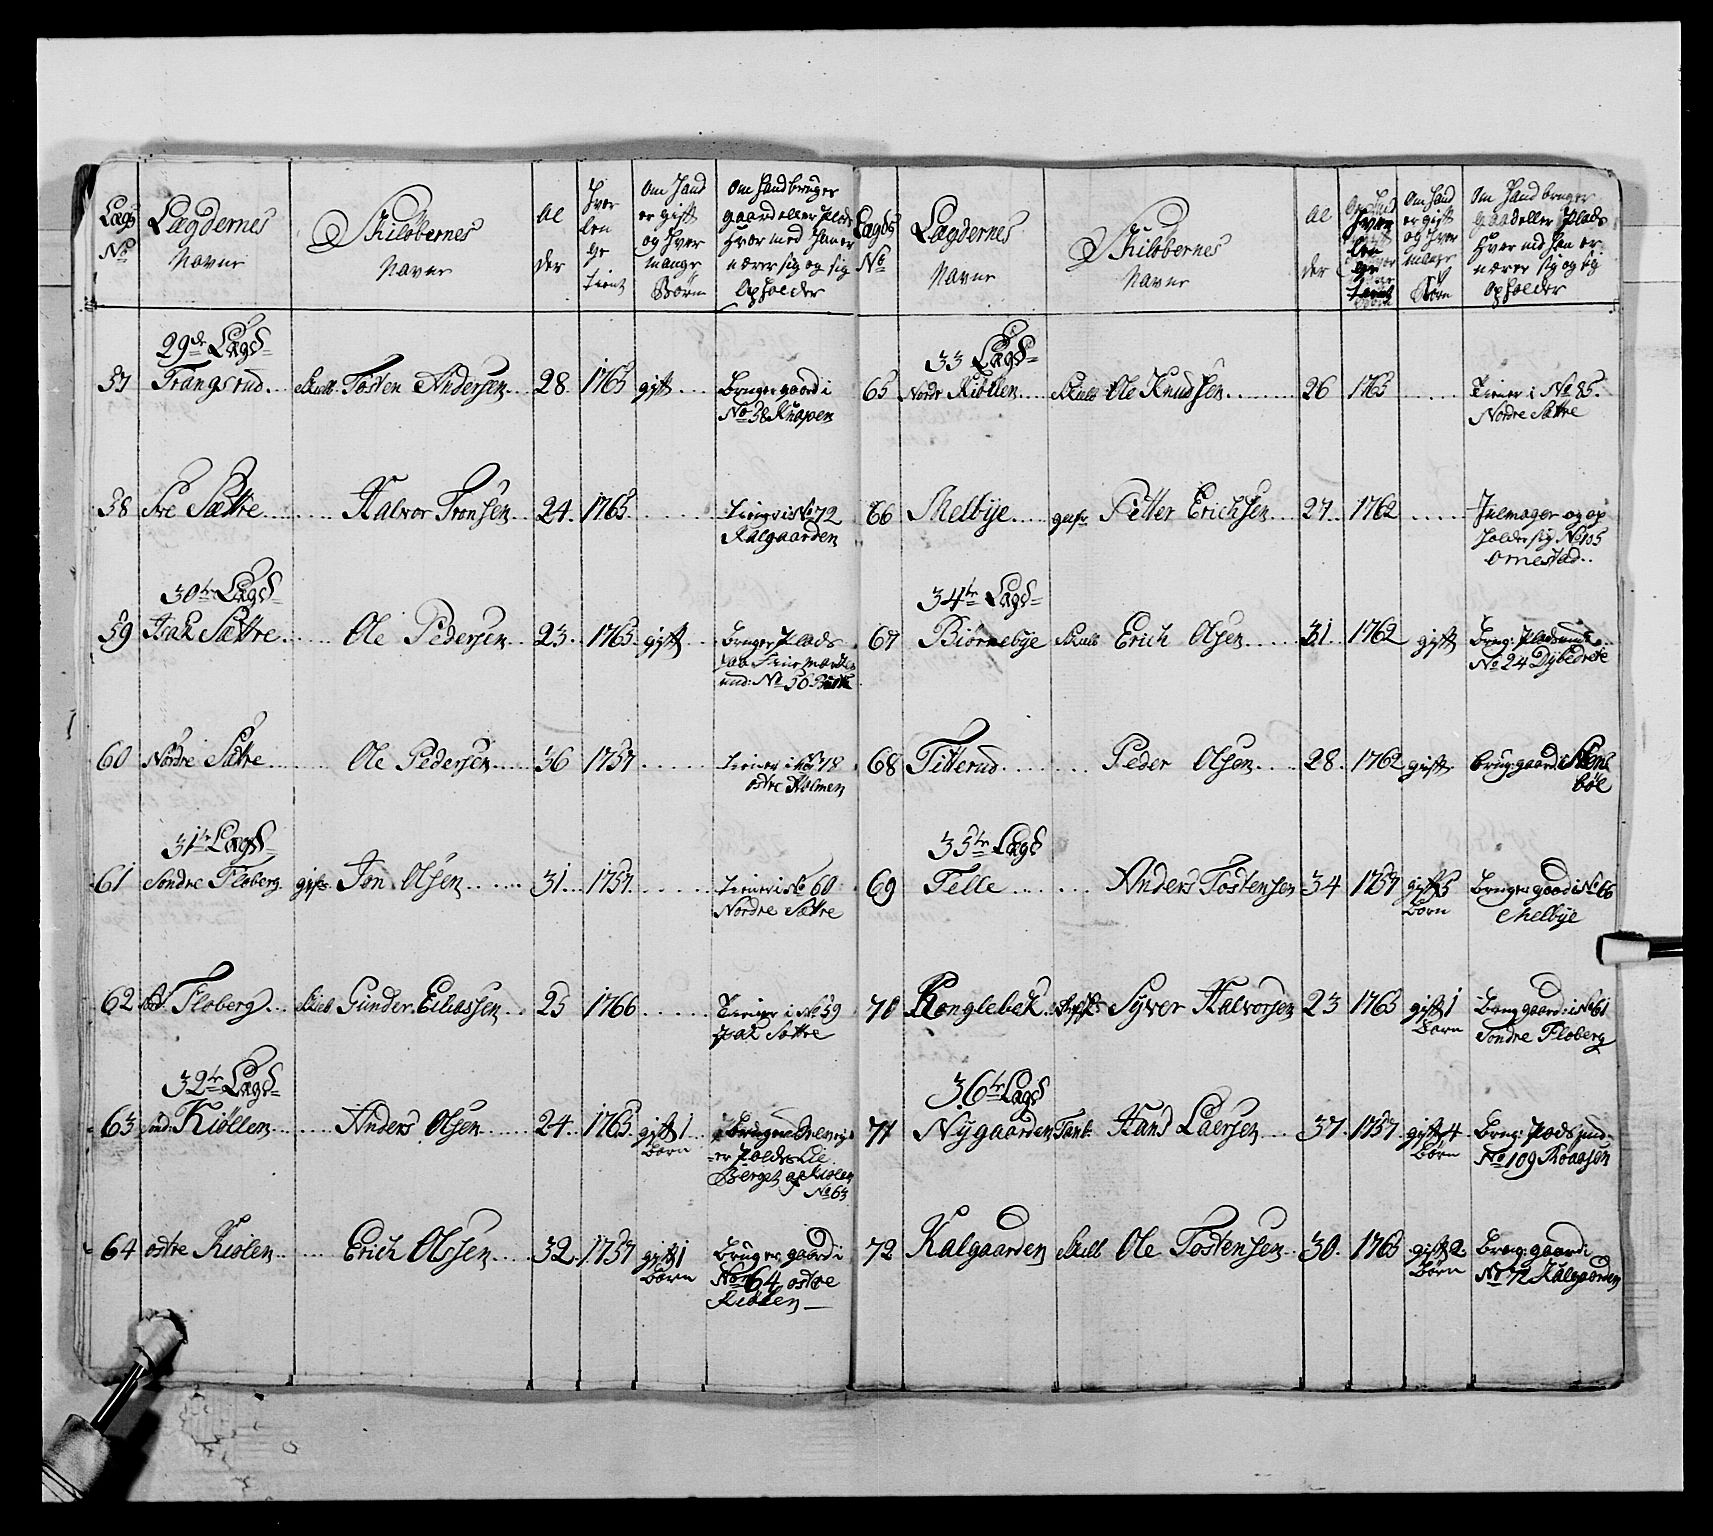 Lægs No
Lægdernes Navne
Skiløbernes Navne
Al der
Hvor len ge tient
Om Hand er gift og hver mange Børn
Om Hand bruger gaard eller Plads Hvor med Han er nærer sig og sig Opholder
29de Lægd
57 Trangsrud Skull. Tosten Andersen 28 1765 gift Bruger gaard i
No 58 Knapen
58 Sætre Halvor Tronsen 24 1765 Tiener i No 72
Kalgaarden
30te Lægd
59 Isak Sættre Ole Pedersen 23 1765 gift Bruger Plads
und: No 50
60 Nordre Sætre Ole Pedersen 36 1757 Tiener i No 78
ostre Holmen
31te Lægd
61 Sondre Floberg gefr. Jon Olsen 31 1757 Tiener i No 60
Nordre Sættre
62 Floberg Skull Gunder Eiliassen 25 1766 Tiener i No 59
Isak Sættre
32te Lægd
63 Kiøllen Anders Olsen 24 1765 gift 1 Børn
Berget af Kiølen
No 63
64 ostre Kiolen Erich Olssen 32 1757 gift 1 Børn Bruger gaard i
No 64 ostre
Kiøllen
Lægds No
Lægdernes Navne
Skiløbernes Navne
Al der
Hvor len ge tient
Om Hand er gift og hver mange Børn
Om Hand bruger gaard eller Plads Hver med han er nærer sig og sig Opholder
33 Lægd
65 Nordr Kiøllen Skull Ole Knudsen 26 1765 Tiener i No 85.
Nordre Sættre
66 Melbye gefr. Petter Erichsen 27 1762 Julmager og op
holder sig No 105
Ornestad
34te Lægd
67 Biørnebye Skull Erich Olsen 31 1762 gift Brug: Plads und
No 24 Dybedrete
68 Titterud Peder Olsen 28 1762 gift Brug: gaard i Stens
böl
35te Lægd
69 Telle Anders Tostensen 34 1757 gift 5 Børn Bruger gaard i No 66
Melbye
70 Konglebek Syver Halvorsen 23 1765 gift 1 Barn Brug gaard i No 61
Søndre Floberg
36te Lægd
71 Nygaarden Tamb. Hans Laersen 37 1757 gift 4 Børn Brug: Plads und
No 109 Roaasen
72 Kalgaarden Skull Ole Tostensen 30 1765 gift 2 Børn Brug: gaard i
No 72 Kalgaarden